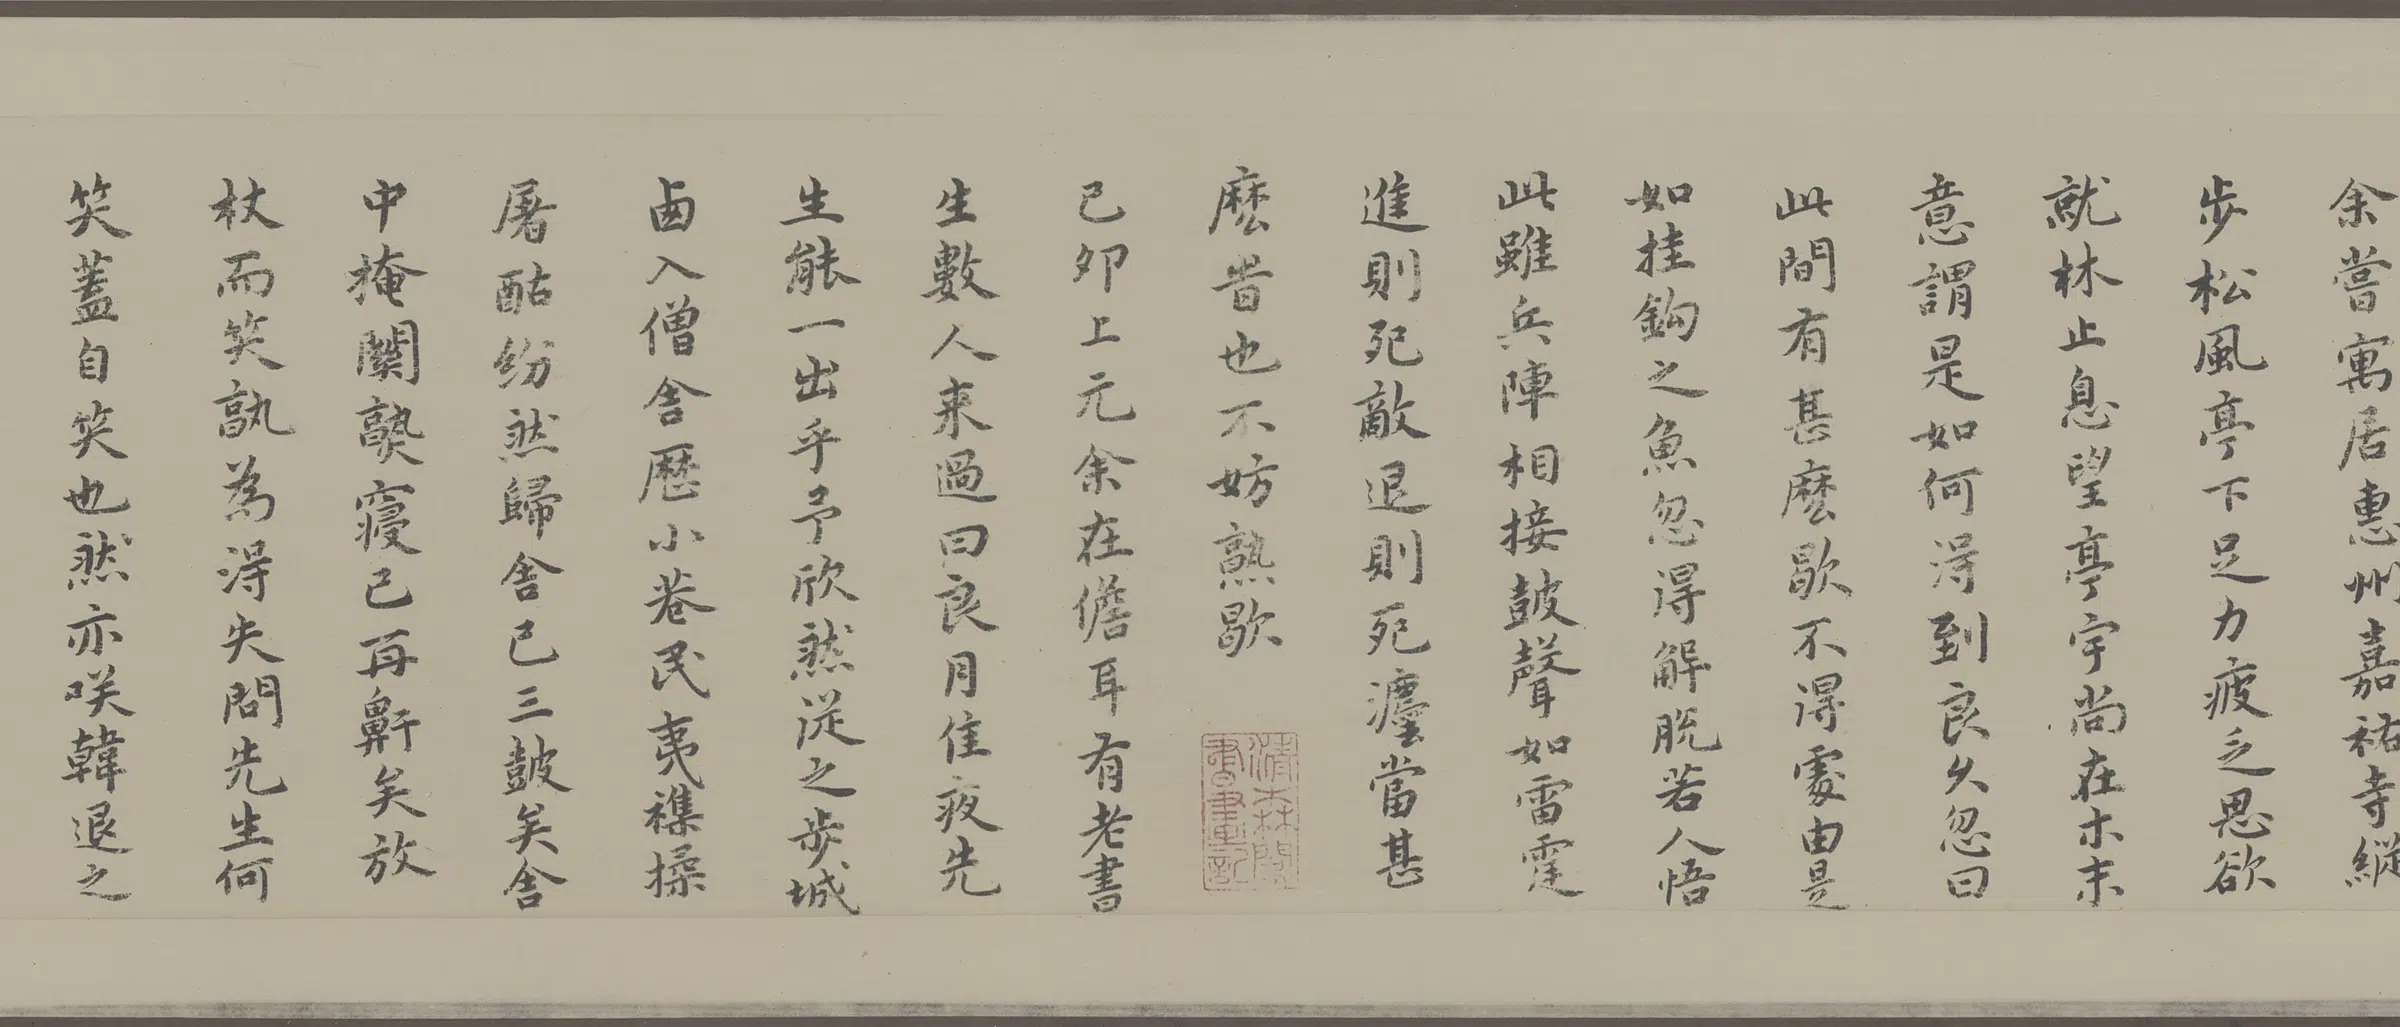 余嘗寓居惠州嘉祐寺縱
步松風亭下足力疲乏思欲
就林止息望亭宇尚在木末
意謂是如何得到良久忽曰
此間有甚麽歇不得處由是
如挂鈎之魚忽得解脫若人悟
此雖兵陣相接鼓聲如雷霆
進則死敵退則死灋當甚
麽時也不妨熟歇
清森閣書畫記
己卯上元余在儋耳有老書
生數人來過曰良月佳夜先
生能一出乎予欣然從之步城
西入僧舍歷小巷民夷襍揉
屠酤紛然歸舍已三鼓矣舍
中掩關熟寢已再鼾矣放
杖而笑孰為得失問先生何
笑蓋自笑也然亦咲韓退之